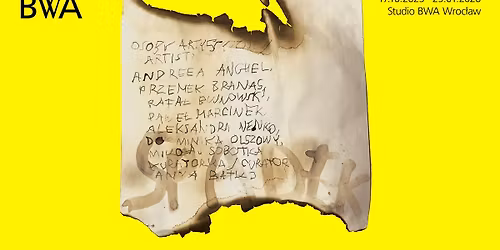 BWA
Studio BWA Wrocław
OSOBY ARTYSTYCZNE
ARTIST
ANDREEA ANGHEL,
PRZEMEK BRANAS,
RAFAŁ BUJNOWSKI,
PAWEŁ MARCINEK
ALEKSANDRA NENKO,
DOMINIKA OLSZOWY,
MIKOŁAJ SOBCZAK
KURATORKA / CURATOR